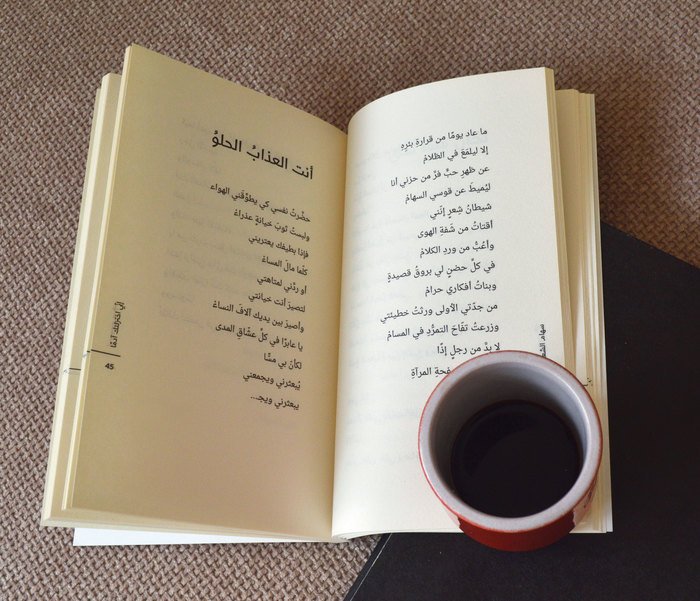 ما عاد يومًا من قرارةِ بئرِهِ
إلا ليلمَعَ في الظلامْ
عن ظهرِ حبٍّ فرَّ من حزني أنا
ليُميطَ عن قوسي السهامْ
شيطانُ شِعرٍ إنّني
أقتاتُ من شَفةِ الهوى
وأعُبُّ من وردِ الكلامْ
في كلِّ حضنٍ لي بروقُ قصيدةٍ
وبناتُ أفكاري حرامْ
من جدّتي الأولى ورثتُ خطيئتي
وزرعتُ تفّاحَ التمرُّدِ في المسامْ
لا بدَّ من رجلٍ إذًا
المرآةِ
سهام
أنت العذابُ الحلوُ
حضّرتُ نفسي كي يطوّقَني الهواء
ولبستُ ثوبَ خيانةٍ عذراءْ
فإذا بطيفك يعتريني
كلّما مالَ المساءْ
أو ردَّني لمتاهتي
لتصيرَ أنت خيانتي
وأصيرَ بين يديك آلافَ النساءْ
يا عابرًا في كلِّ عشّاقِ المدى
لكأنّ بي مسًّا
يُبعثرني ويجمعني
يبعثرني ويجـ...
45